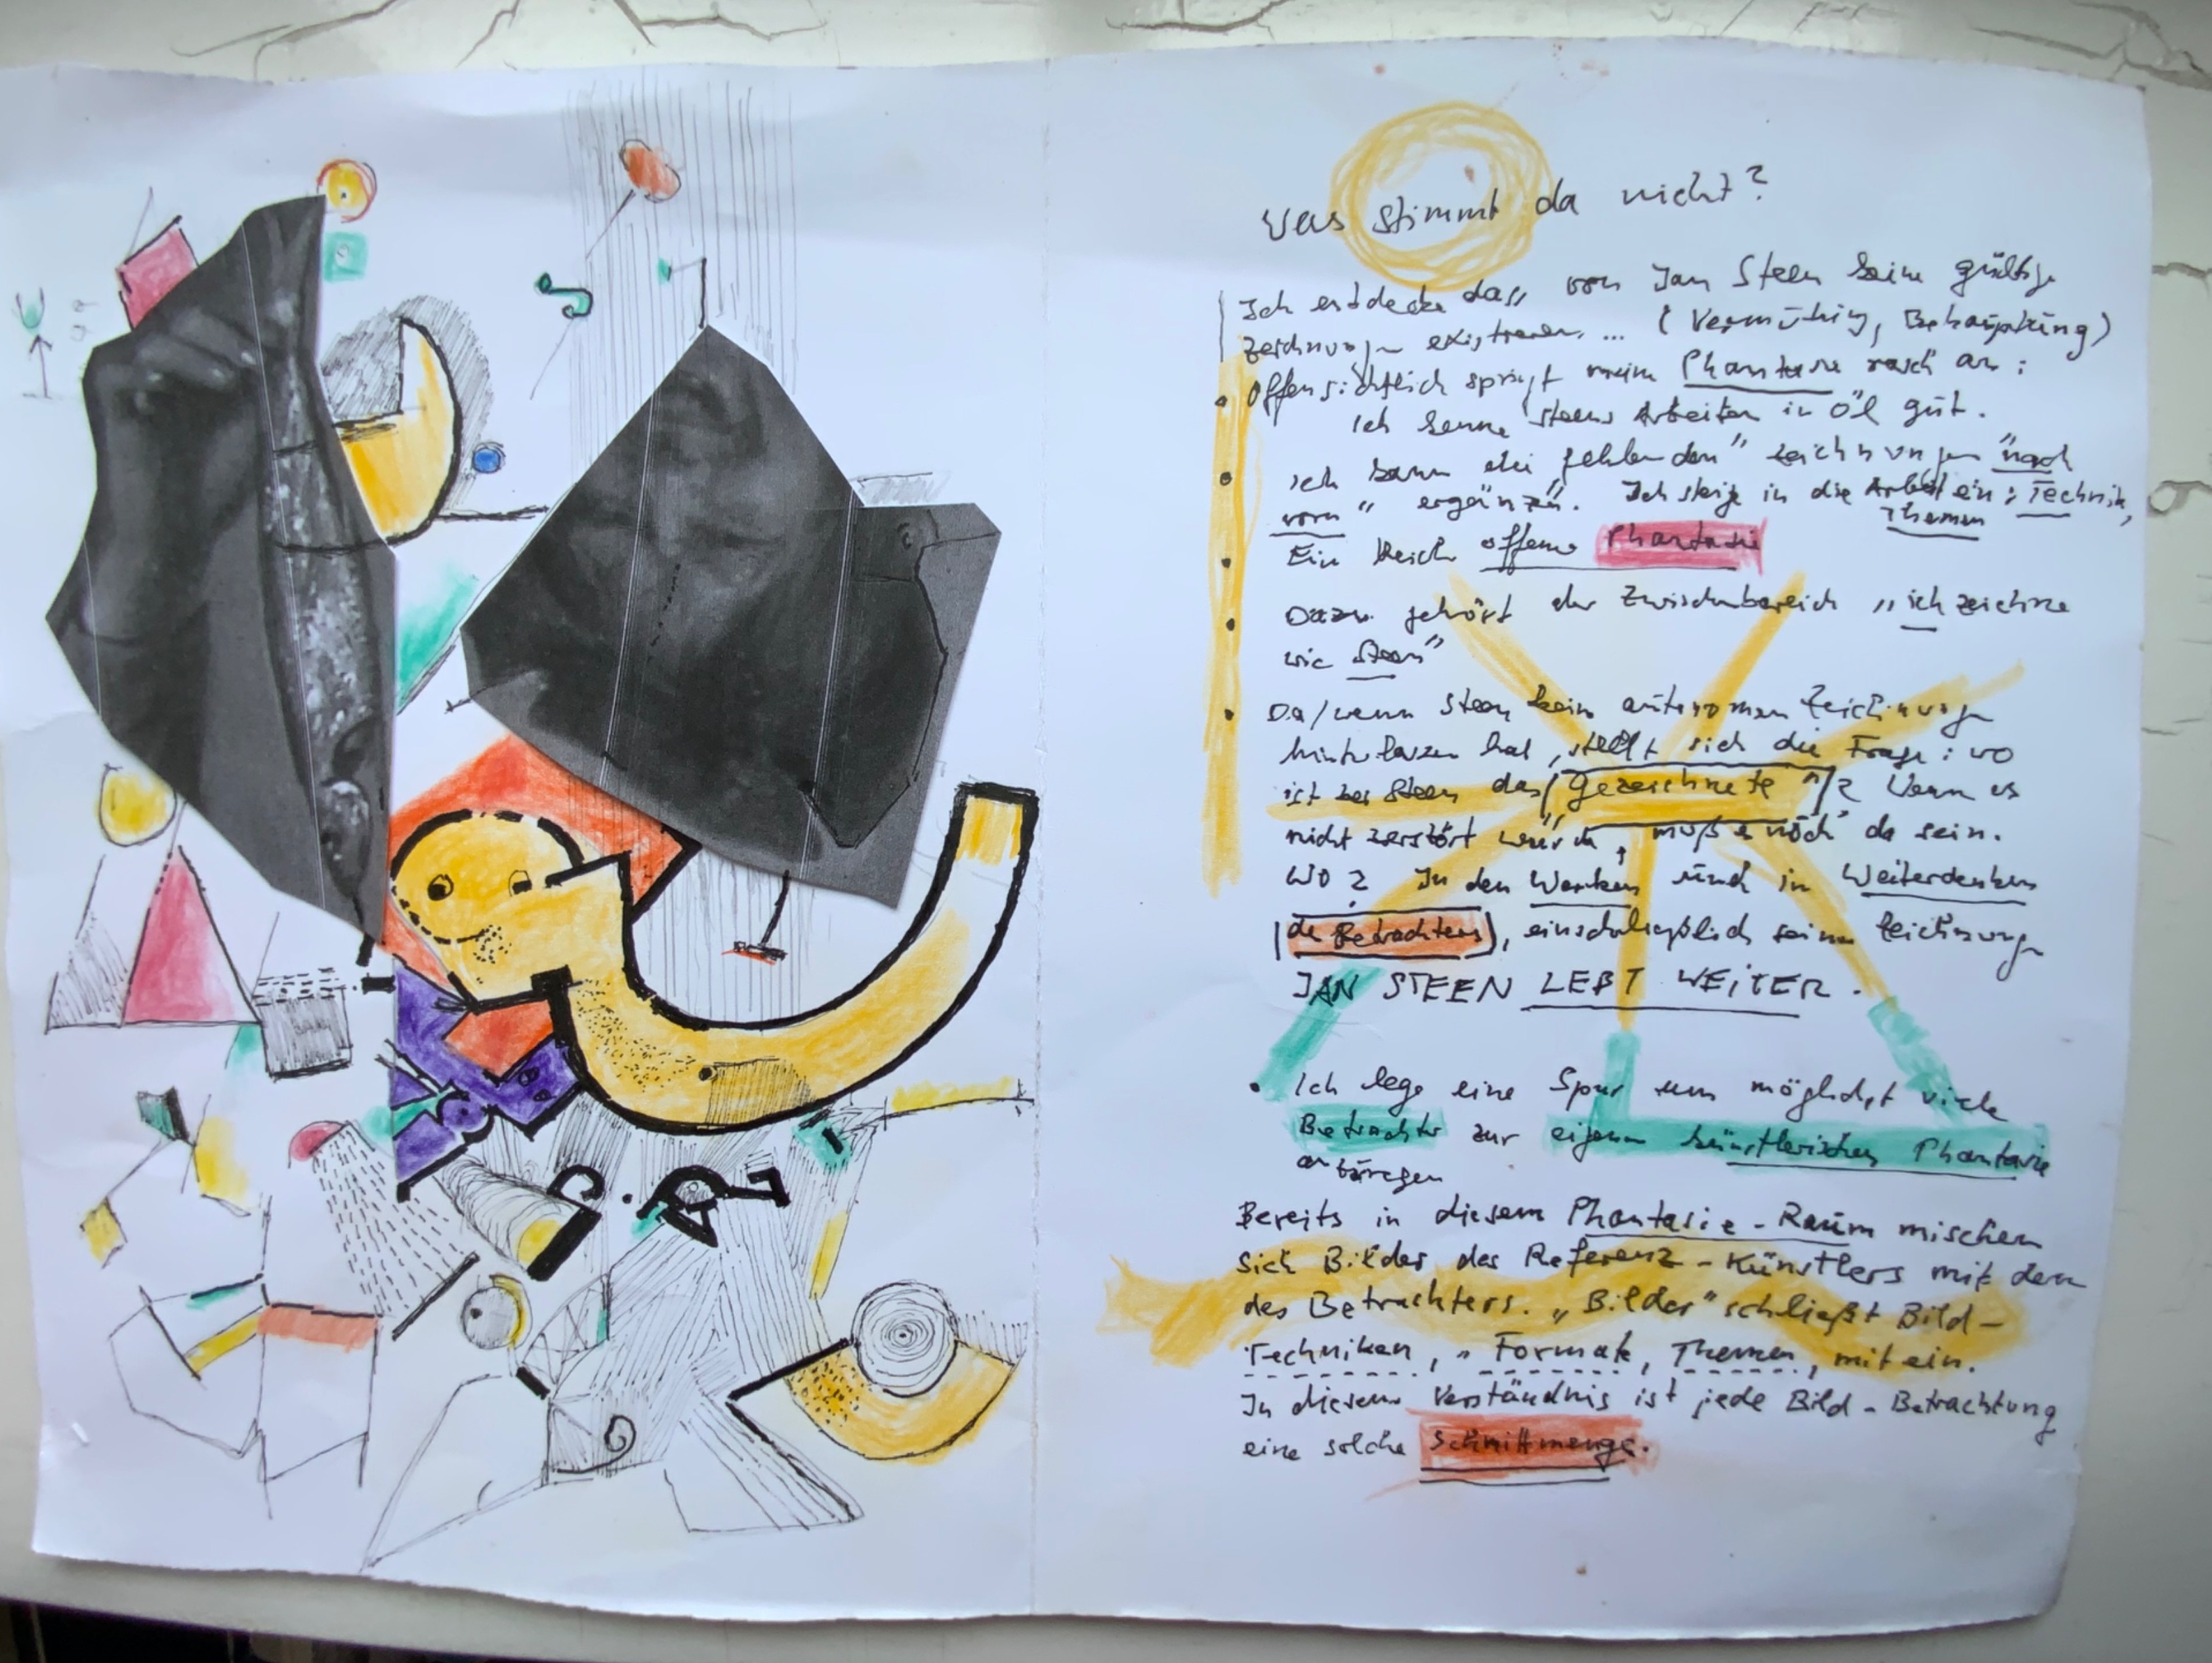 Was stimmt da nicht?
Ich entdecke das, von Jan Steen keine gültige
Zeichnungen existieren ... (Vermutung, Behauptung)
Offensichtlich springt meine Phantasie rasch an:
Ich kenne Steens Arbeiten in Öl gut.
Ich kann die "fehlenden" Zeichnungen "nach
vorn" ergänzen. Ich steige in die Arbeit ein: Technik,
Themen
Ein Reich offener Phantasie
Dazu gehört der Zwischenbereich "ich zeichne
wie Steen"
Da/wenn Steen keine autonomen Zeichnungen
hinterlassen hat, stellt sich die Frage: wo
ist bei Steen das "Gezeichnete"? Wenn es
nicht zerstört wurde, muß es noch da sein.
Wo? In den Werken und in Weiterdenken
des Betrachters, einschließlich seiner Zeichnungen
JAN STEEN LEBT WEITER.
Ich lege eine Spur um möglichst viele
Betrachter zur eigenen künstlerischen Phantasie
anzuregen
Bereits in diesem Phantasie-Raum mischen
sich Bilder des Referenz-Künstlers mit den
des Betrachters. "Bilder" schließt Bild-
Techniken, " Formate, Themen, mit ein.
In diesem Verständnis ist jede Bild-Betrachtung
eine solche Schnittmenge.